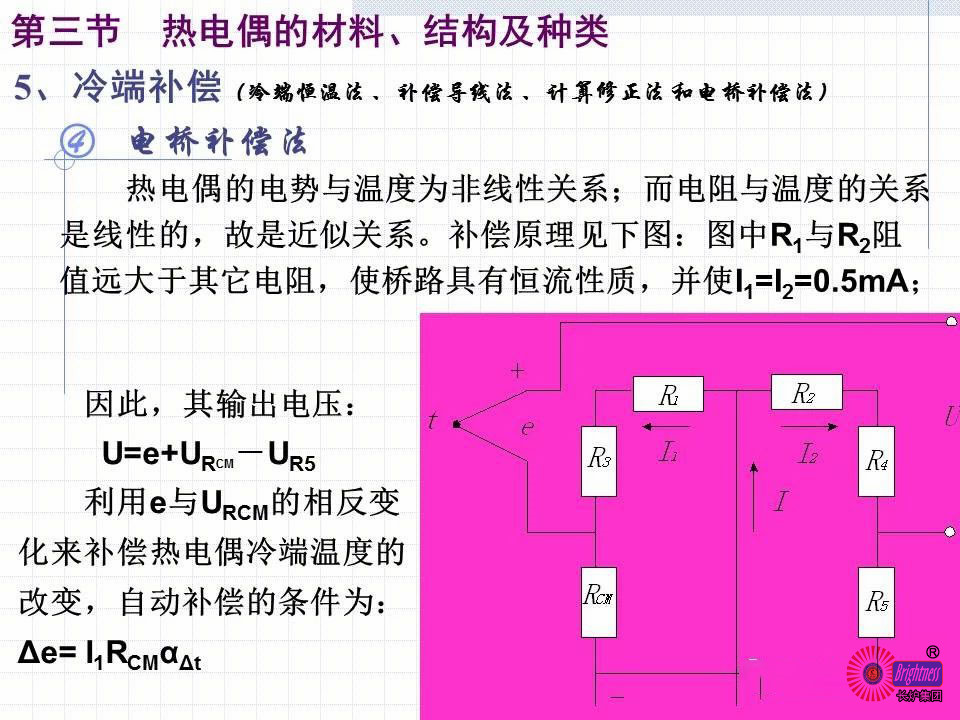 第三节 热电偶的材料、结构及种类
5、冷端补偿(冷端恒温法、补偿导线法、计算修正法和电桥补偿法)
④ 电桥补偿法
热电偶的电势与温度为非线性关系；而电阻与温度的关系
是线性的，故是近似关系。补偿原理见下图：图中R1与R2阻
值远大于其它电阻，使桥路具有恒流性质，并使I1=I2=0.5mA；
因此，其输出电压：
U=e+URCM－UR5
利用e与URCM的相反变
化来补偿热电偶冷端温度的
改变，自动补偿的条件为：
Δe= I1RCMαΔt
+
t
e
R1
R2
U
R3
I1
I2
R4
I
RCM
R5
－
®
Brightness
长炉集团